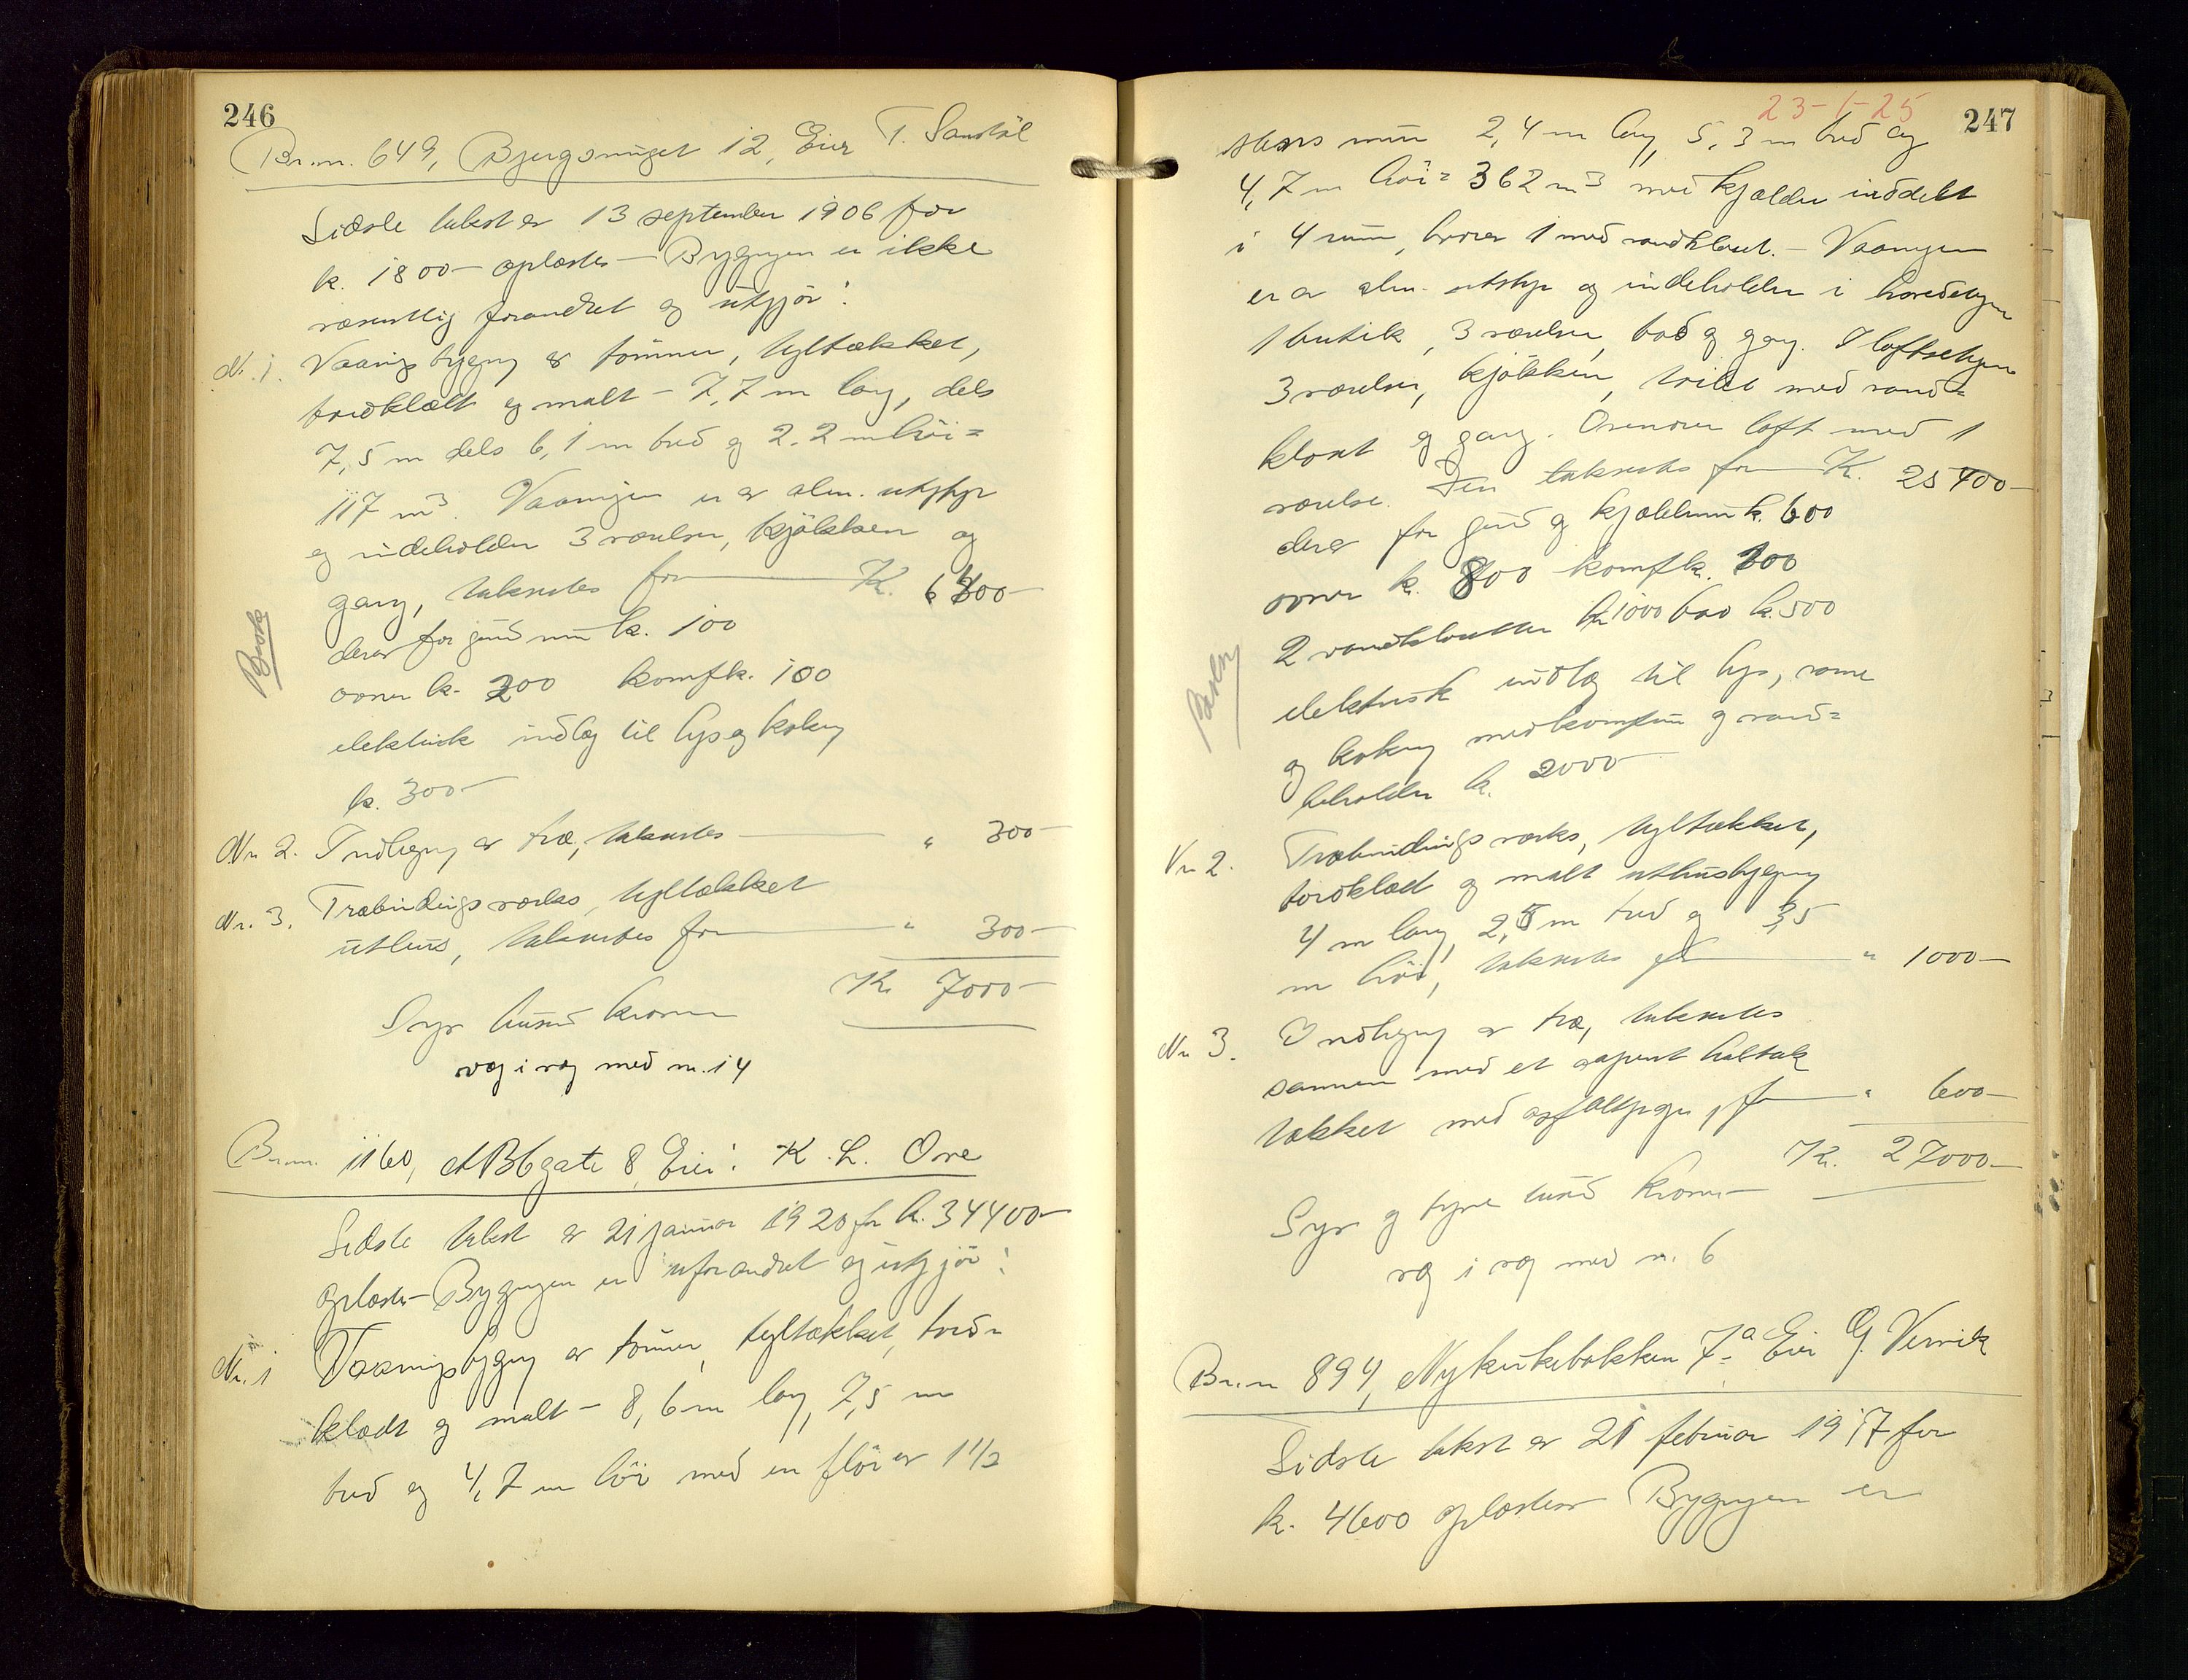 246
Br.nr. 649, Bjergsmuget 12, Eier T. Sandvik
Sidste takst er 13 september 1906 for
k. 1800- oplæstes - Bygngen er ikke
væsentlig forandret og utgjör:
Nr. 1. Vaanigsbygng av tömmer, tegltækket,
bordklædt og malt - 7,7 m lang, dels
7,5 m dels 6,1 m bred og 2,2 m höi =
117 m3. Vaanigen er av alm. utstyr
og indeholder 3 værelser, kjökken og
gang, takseres for K. 6400-
derav for grund mur k. 100
ovner k. 200 komf k. 100
elektrisk indlæg til lys og kokng
k. 300-
Nr 2. Indhegng av træ, takseres " 300-
Nr. 3. Træbindingsværks, tegltækket
uthus, takseres for " 300-
Kr 7000-
Syv tusind kroner
væg i væg med nr. 14
Br.nr. 1160, A B C gate 8, Eier: K. L. Ove
Sidste takst er 21 januar 1920 for k. 34400-
oplæstes - Bygngen er uforandret og utgjör:
Nr. 1 Vaanigsbygng av tömmer, tegltækket, bord=
klædt og malt - 8,6 m lang, 7,5 m
bred og 4,7 m höi med en flöi av 1 1/2
23-1-25
247
stens mur 2,4 m lang, 5,3 m bred og
4,7 m höi = 362 m3 med kjælder inddelt
i 4 rum, hvorav 1 med vandkloset. - Vaanigen
er av alm. utstyr og indeholder i hovedetagen
1 butik, 3 værelser, bad og gang. I loftsetagen
3 værelser, kjökken, toilet med vand=
kloset og gang. Ovenover loft med 1
værelse. Den takseres for K. 25400-
derav for grund og kjældermur k. 600
ovner k. 800 komf k. 200
2 vandklosetter kr 1000 bad k. 500
elektrisk indlæg til lys, varme
og kokng med komfur og vand=
beholder k. 2000-
Nr 2. Træbindingsværks, tegltækket,
bordklædt og malt uthusbygng
4 m lang, 2,5 m bred og 3,5
m höi, takseres for " 1000-
Nr 3. Indhegng av træ, takseres
sammen med et aapent halvtak
tækket med asfaltpap, for " 600-
Kr. 27000-
Syv og tyve tusind kroner
væg i væg med nr. 6
Br.nr 894, Nykirkebakken 7a Eier G. Vervik
Sidste takst er 21 februar 1917 for
k. 4600 oplæstes Bygngen er